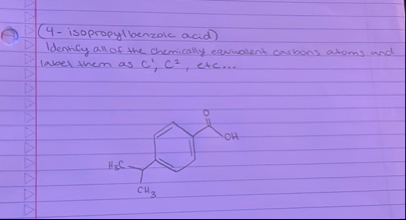 (4-isopropylbenzoic acid)
Identify all of the chemically equivalent carbons atoms and
label them as C¹, C², etc...
O
OH
H₃C
CH₃